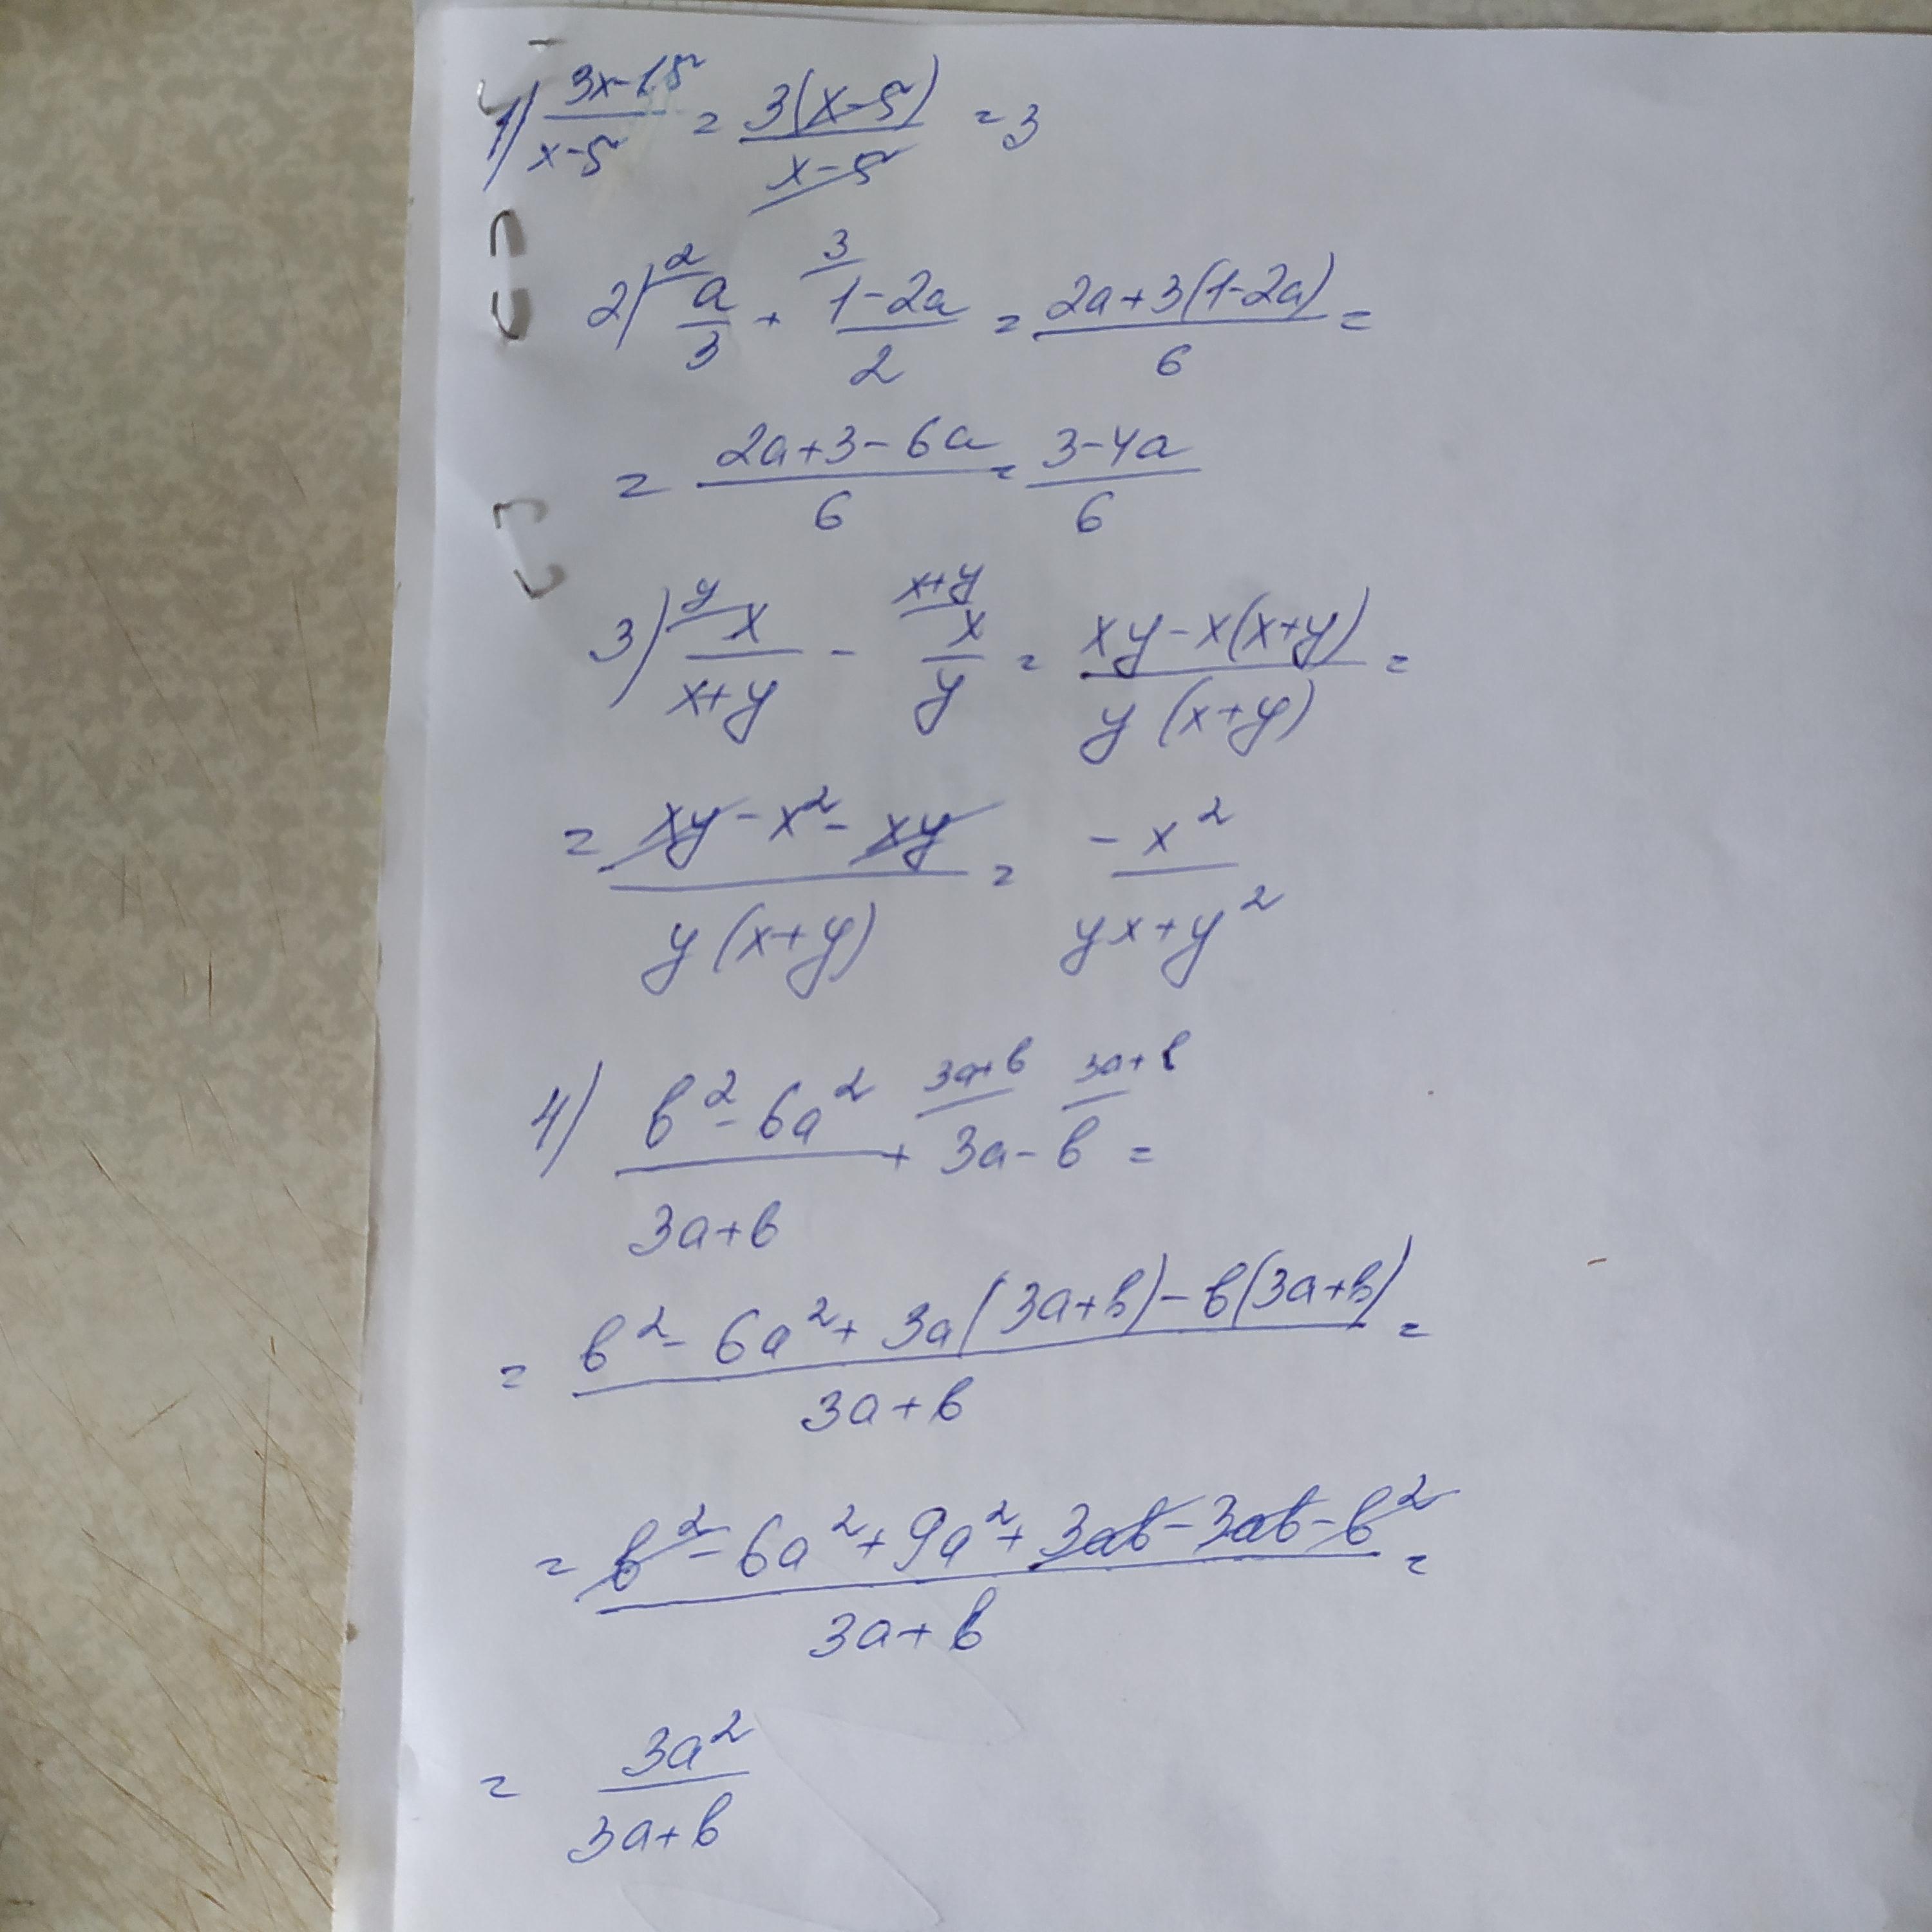 1) (3x-15)/(x-5) = 3(x-5)/(x-5) = 3
2) ²a/3 + ³(1-2a)/2 = (2a+3(1-2a))/6 =
= (2a+3-6a)/6 = (3-4a)/6
3) ʸx/(x+y) - ˣ⁺ʸx/y = (xy-x(x+y))/(y(x+y)) =
= (xy-x²-xy)/(y(x+y)) = -x²/(yx+y²)
4) (b²-6a²)/(3a+b) + ³ᵃ⁺ᵇ3a - ³ᵃ⁺ᵇb =
= (b²-6a²+3a(3a+b)-b(3a+b))/(3a+b) =
= (b²-6a²+9a²+3ab-3ab-b²)/(3a+b) =
= 3a²/(3a+b)